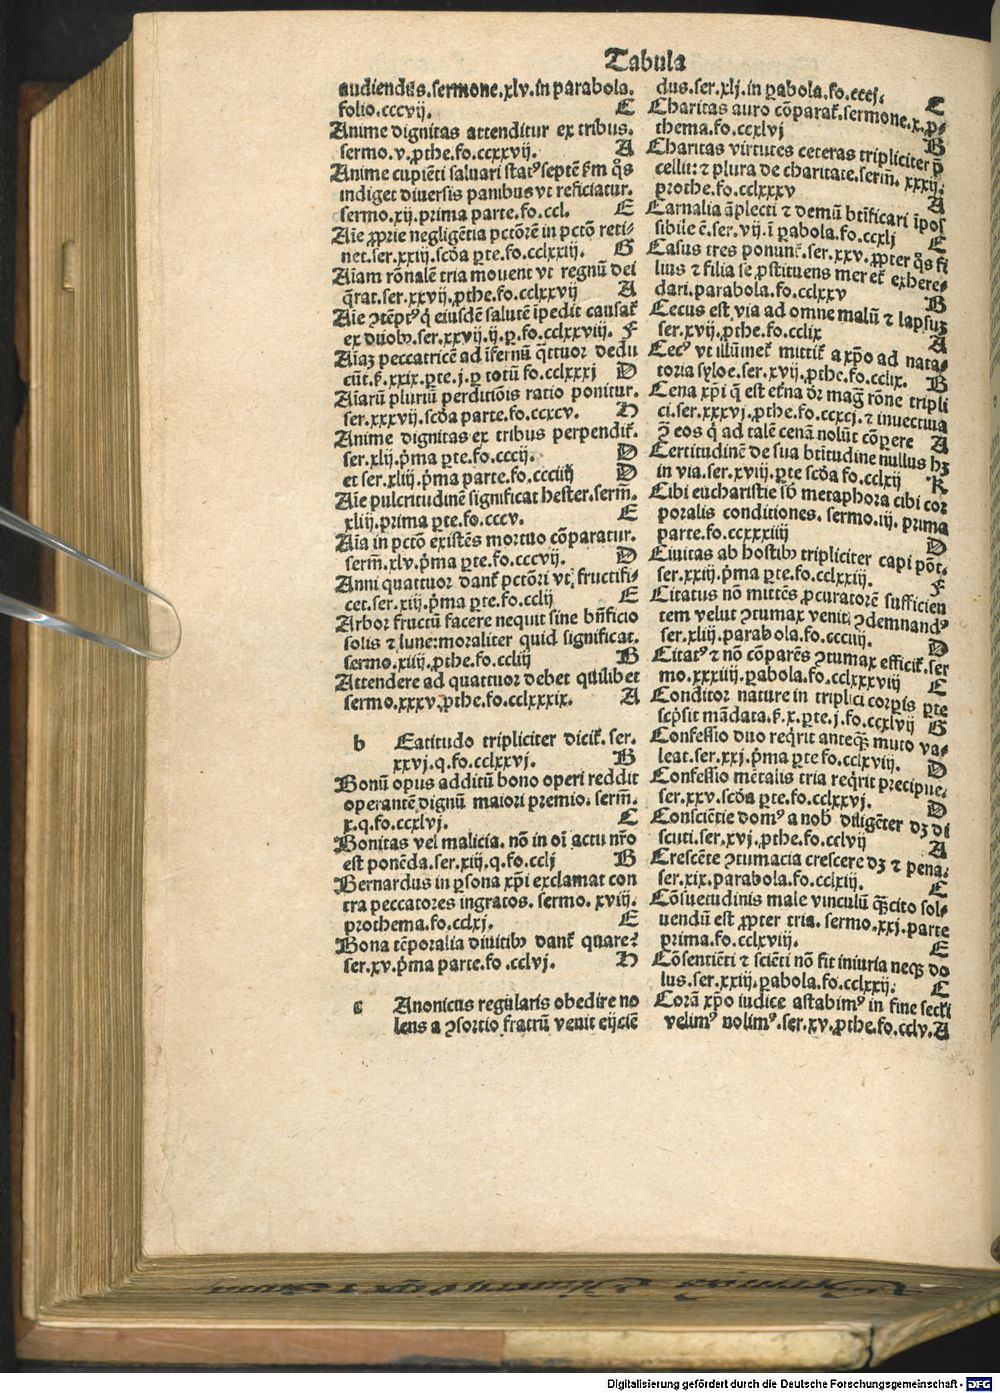 Tabula
audiendus.sermone.xlv.in parabola.
folio.cccvij. C
Anime dignitas attenditur ex tribus.
sermo.v.ꝓthe.fo.ccxxvij. A
Anime cupiēti saluari statꝰ septē ẜm q̄s
indiget diuersis panibus vt reficiatur.
sermo.xij.prima parte.fo.ccl. E
Aīe ꝓprie negligētia pctōrē in pctō reti-
net.ser.xxiij.scďa ꝑte.fo.cclxxiij. G
Aīam rōnalē tria mouent vt regnū dei
q̄rat.ser.xxvij.ꝓthe.fo.cclxxvij A
Aīe ꝯtēptꝰ q̇ eiusdē salutē īpedit causat̄
ex duobꝫ.ser.xxvij.ij.ꝑ.fo.cclxxviij. F
Aīaꝫ peccatricē ad īfernū q̄ttuor dedu
cūt.ẜ.xxix.ꝑte.j.ꝑ totū fo.cclxxxj D
Aīarū pluriū perditiōis ratio ponitur.
ser.xxxvij.scďa parte.fo.ccxcv. H
Anime dignitas ex tribus perpendit̄.
ser.xlij.p̄ma ꝑte.fo.cccij. D
et ser.xliij.p̄ma parte.fo.ccciiij D
Aīe pulcritudinē significat hester.serm̄.
xliij.prima ꝑte.fo.cccv. E
Aīa in pctō existēs mortuo cōparatur.
serm̄.xlv.p̄ma ꝑte.fo.cccvij. D
Anni quattuor dant̄ pctōri vt fructifi-
cet.ser.xiij.p̄ma ꝑte.fo.cclij E
Arbor fructū facere nequit sine bn̄ficio
solis ⁊ lune:moraliter quid significat.
sermo.xiiij.ꝓthe.fo.ccliij B
Attendere ad quattuor debet quilibet
sermo.xxxv.ꝓthe.fo.cclxxxix. A
b Eatitudo tripliciter dicit̄.ser.
xxvj.q.fo.cclxxvj. B
Bonū opus additū bono operi reddit
operantē dignū maiori premio. serm̄.
x.q.fo.ccxlvj. C
Bonitas vel malicia. nō in oī actu nr̄o
est ponēda.ser.xiij.q.fo.cclj B
Bernardus in ꝑsona xp̄i exclamat con
tra peccatores ingratos. sermo. xviij.
prothema.fo.cclxj. E
Bona tēporalia diuitibꝫ dant̄ quare?
ser.xv.p̄ma parte.fo.cclvj. H
c Anonicus regularis obedire no
lens a ꝯsortio fratrū venit eijciē
dus.ser.xlj.in ꝑabola.fo.cccj. C
Charitas auro cōparat̄.sermone.x.ꝓ-
thema.fo.ccxlvj B
Charitas virtutes ceteras tripliciter p̄
cellit: ⁊ plura de charitate.serm̄. xxxij.
prothe.fo.cclxxxv A
Carnalia āplecti ⁊ demū btīficari īpos
sibile ē.ser.vij.ī ꝑabola.fo.ccxlj E
Casus tres ponunt̄.ser.xxv.ꝓpter q̄s fi
lius ⁊ filia se ꝓstituens meret̄ exhere-
dari.parabola.fo.cclxxv B
Cecus est via ad omne malū ⁊ lapsus
ser.xvij.ꝓthe.fo.cclix A
Cecꝰ vt illūinet̄ mittit̄ a xp̄o ad nata-
toria syloe.ser.xvij.ꝓthe.fo.cclix. B
Cena xp̄i q̄ est etn̄a dr̄ maḡ rōne tripli
ci.ser.xxxvj.ꝓthe.fo.ccxcj.⁊ inuectiua
ꝯ̄ eos q̇ ad talē cenā nolūt cōꝑere A
Certitudinē de sua btītudine nullus hꝫ
in via.ser.xviij.ꝑte scďa fo.cclxij K
Cibi eucharistie sb̄ metaphora cibi cor
poralis conditiones. sermo.iij. prima
parte.fo.ccxxxiiij D
Ciuitas ab hostibꝫ tripliciter capi pōt.
ser.xxiij.p̄ma ꝑte.fo.cclxxiij. F
Citatus nō mittēs ꝓcuratorē sufficien
tem velut ꝯtumax venit ꝯdemnandꝰ
ser.xliij.parabola.fo.ccciiij. D
Citatꝰ ⁊ nō cōparēs ꝯtumax efficit̄.ser
mo.xxxiiij.ꝑabola.fo.cclxxxviij E
Conditor nature in triplici corꝑis ꝑte
scp̄sit mādata.ẜ.x.ꝑte.j.fo.ccxlvij G
Confessio duo reqͥrit anteqꝫ multo va-
leat.ser.xxj.p̄ma ꝑte fo.cclxviij. D
Confessio mētalis tria reqͥrit precipue.
ser.xxv.scďa ꝑte.fo.cclxxvj. D
Consciētie domꝰ a nob̄ diligēter dꝫ di
scuti.ser.xvj.ꝓthe.fo.cclvij A
Crescēte ꝯtumacia crescere dꝫ ⁊ pena.
ser.xix.parabola.fo.cclxiij. C
Cōsuetudinis male vinculū qꝫcito sol-
uendū est ꝓpter tria. sermo.xxj.parte
prima.fo.cclxviij. E
Cōsentiēti ⁊ sciēti nō fit iniuria neqꝫ do
lus.ser.xxiij.ꝑabola.fo.cclxxij. C
Corā xp̄o iudice astabimꝰ in fine secl̄i
velimꝰ nolimꝰ.ser.xv.ꝓthe.fo.cclv.A
Digitalisierung gefördert durch die Deutsche Forschungsgemeinschaft - DFG